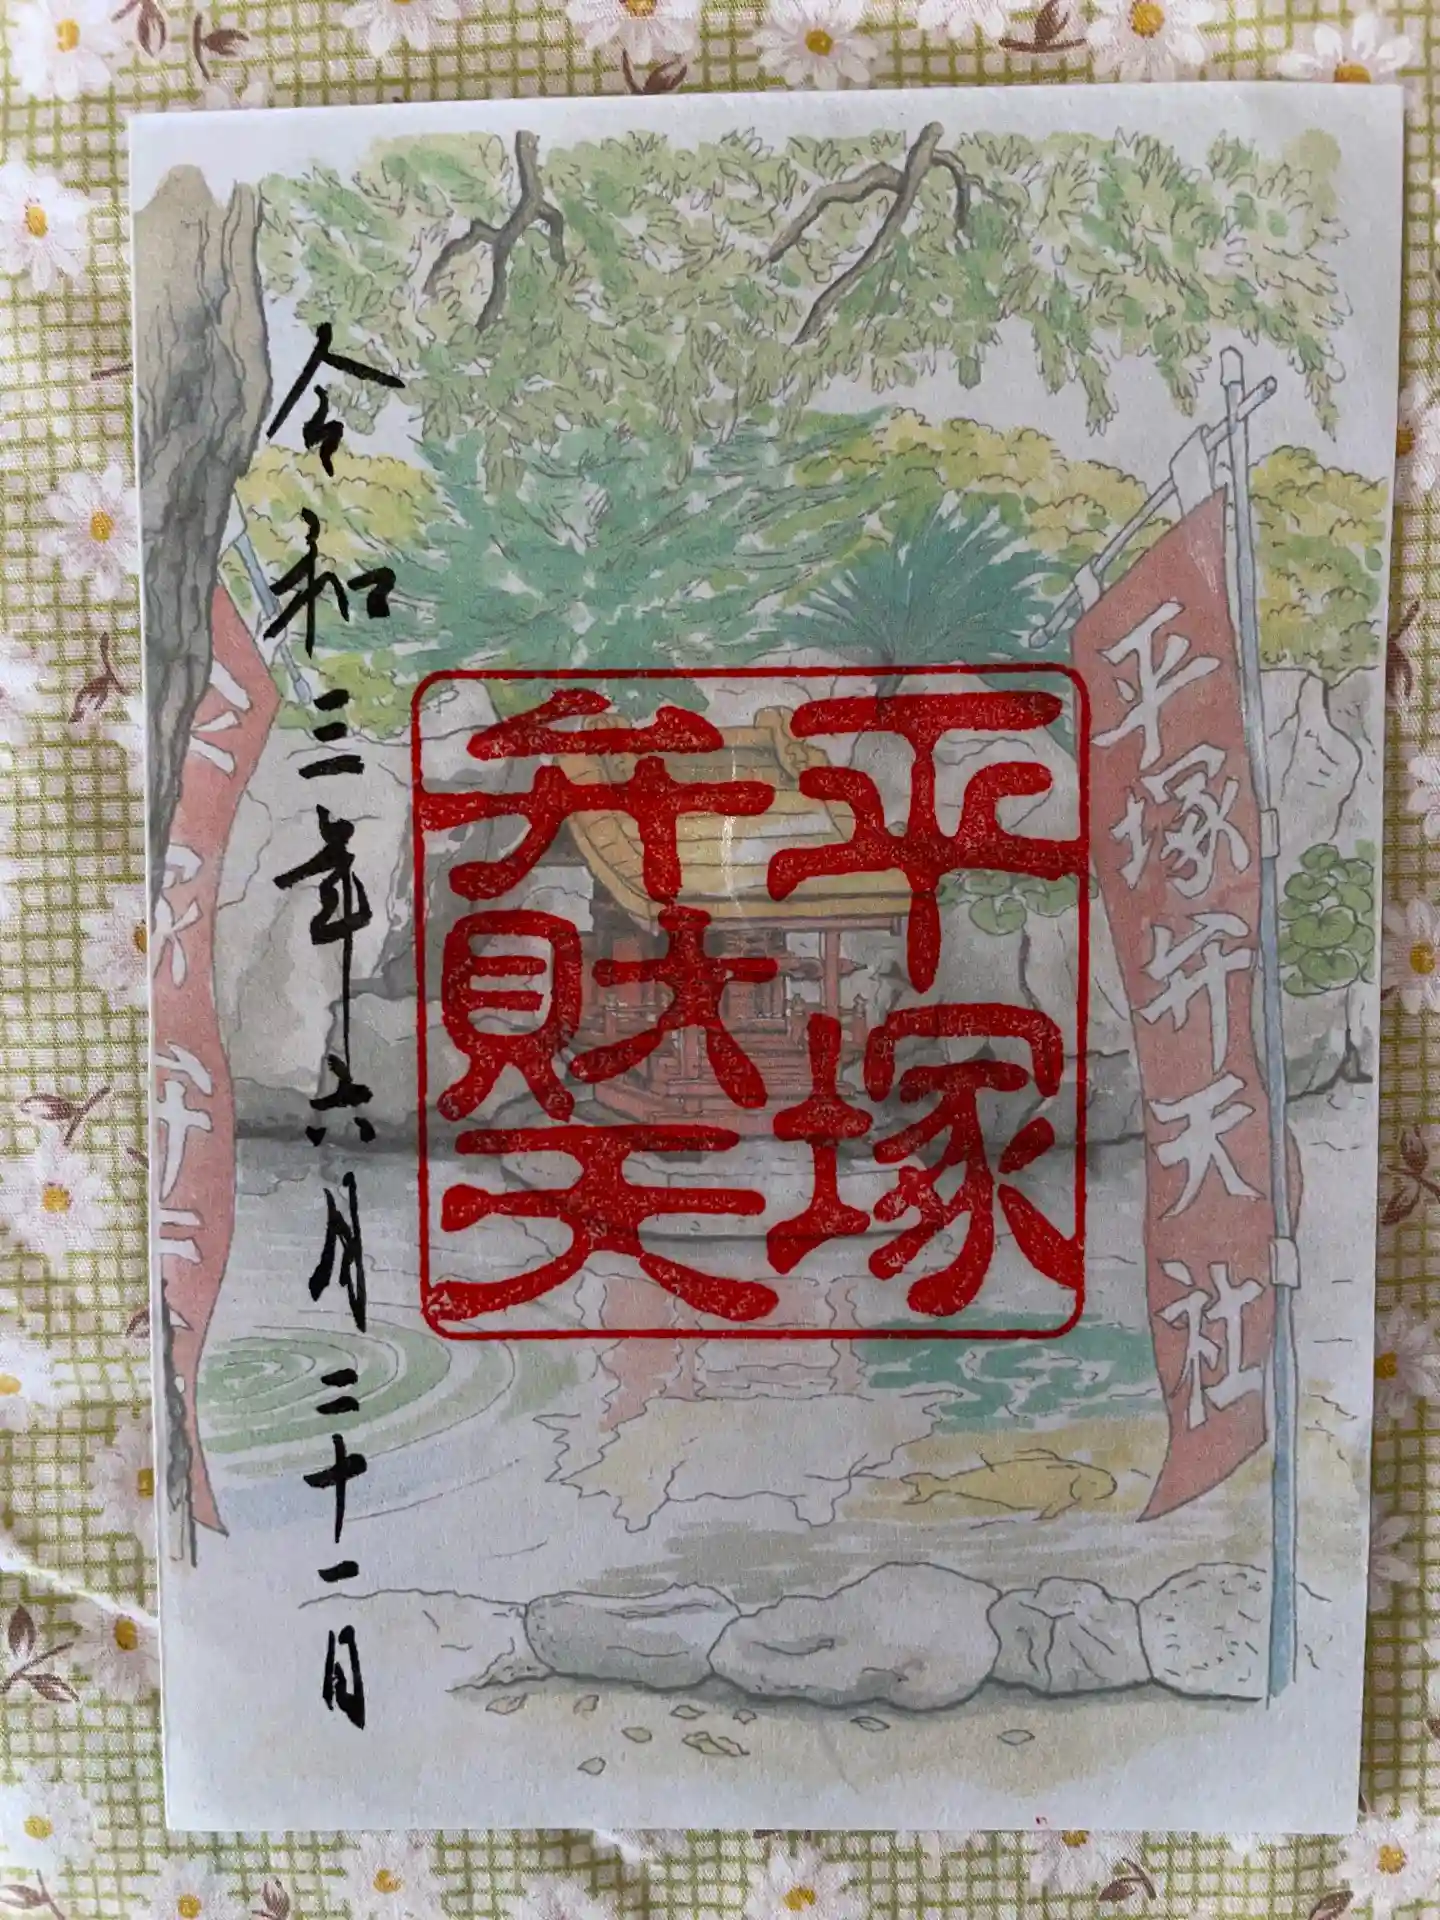 平塚弁天社
平塚
弁財天
令和三年六月二十一日